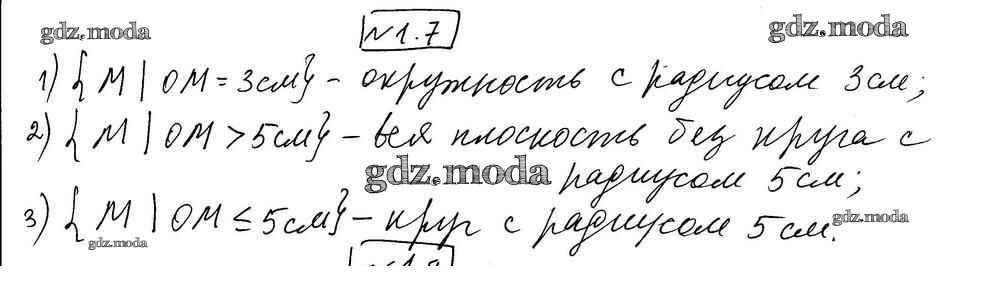 gdz.moda №1.7 gdz.moda
1) { M | OM = 3см} - окружность с радиусом 3см;
2) { M | OM > 5см} - вся плоскость без круга с
gdz.moda радиусом 5см;
3) { M | OM ≤ 5см} - круг с радиусом 5см.
gdz.moda gdz.moda